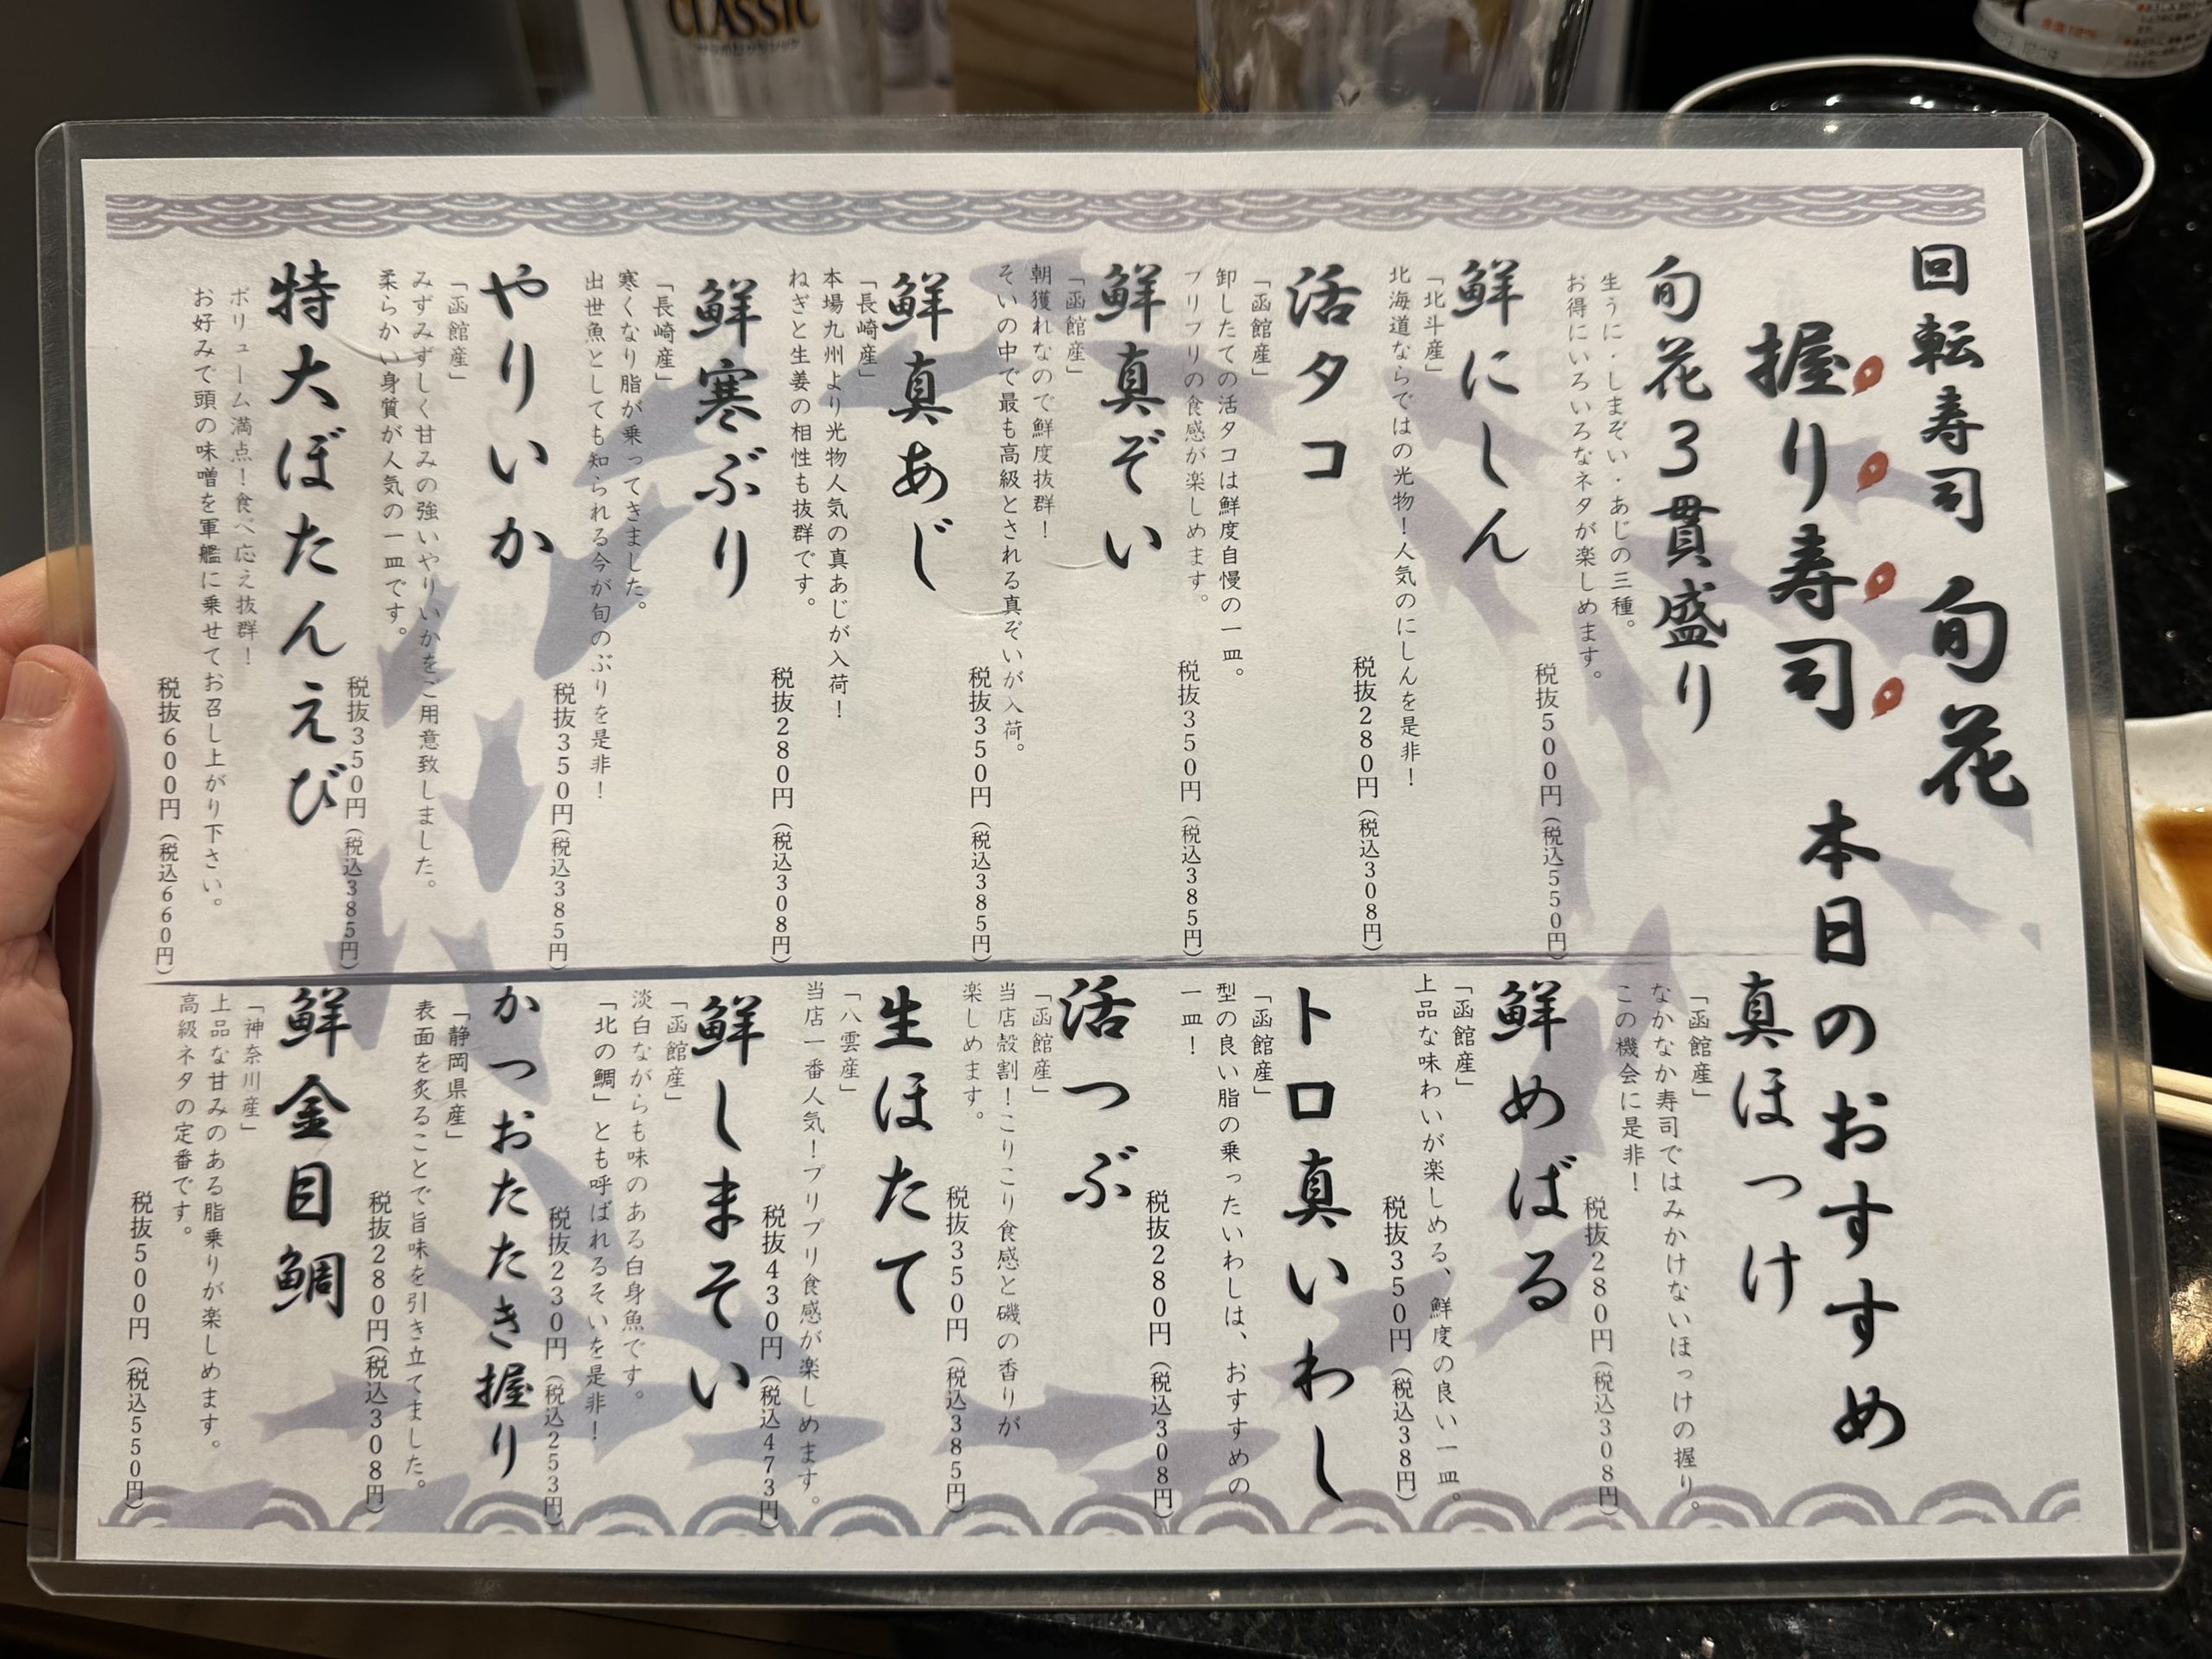 CLASSIC
回転寿司 旬花
握り寿司 本日のおすすめ
旬花3貫盛り
生うに・しまぞい・あじの三種。
お得にいろいろなネタが楽しめます。
税抜500円(税込550円)
鮮にしん
「北斗産」
北海道ならではの光物!人気のにしんを是非!
税抜280円(税込308円)
活タコ
「函館産」
卸したての活タコは鮮度自慢の一皿。
プリプリの食感が楽しめます。
税抜350円(税込385円)
鮮真ぞい
「函館産」
朝獲れなので鮮度抜群!
そいの中で最も高級とされる真ぞいが入荷。
税抜350円(税込385円)
鮮真あじ
「長崎産」
本場九州より光物人気の真あじが入荷!
ねぎと生姜の相性も抜群です。
税抜280円(税込308円)
鮮寒ぶり
「長崎産」
寒くなり脂が乗ってきました。
出世魚としても知られる今が旬のぶりを是非!
税抜350円(税込385円)
やりいか
「函館産」
みずみずしく甘みの強いやりいかをご用意致しました。
柔らかい身質が人気の一皿です。
税抜350円(税込385円)
特大ぼたんえび
ボリューム満点!食べ応え抜群!
お好みで頭の味噌を軍艦に乗せてお召し上がり下さい。
税抜600円(税込660円)
真ほっけ
「函館産」
なかなか寿司ではみかけないほっけの握り。
この機会に是非!
税抜280円(税込308円)
鮮めばる
「函館産」
上品な味わいが楽しめる、鮮度の良い一皿。
税抜350円(税込38円)
トロ真いわし
「函館産」
型の良い脂の乗ったいわしは、おすすめの
一皿!
税抜280円(税込308円)
活つぶ
「函館産」
当店殻割!こりこり食感と磯の香りが
楽しめます。
税抜350円(税込385円)
生ほたて
「八雲産」
当店一番人気!プリプリ食感が楽しめます。
税抜430円(税込473円)
鮮しまそい
「函館産」
淡白ながらも味のある白身魚です。
「北の鯛」とも呼ばれるそいを是非!
税抜230円(税込253円)
かつおたたき握り
「静岡県産」
表面を炙ることで旨味を引き立てました。
税抜280円(税込308円)
鮮金目鯛
「神奈川産」
上品な甘みのある脂乗りが楽しめます。
高級ネタの定番です。
税抜500円(税込550円)